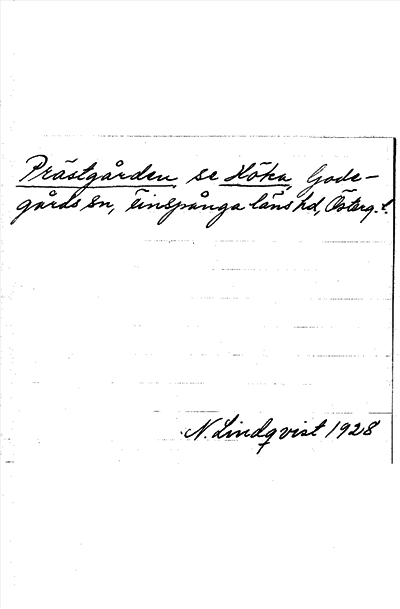 Prästgården se Höka, Gode-
gårds sn, Finspånga läns hd, Österg. l.
N. Lindqvist 1928